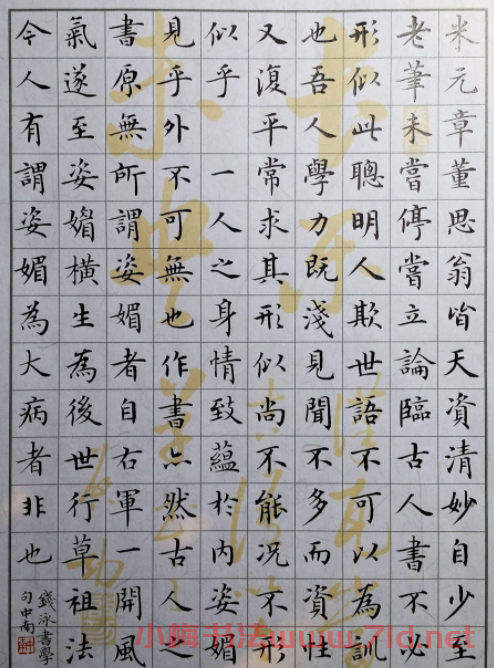 米元章董思翁皆天資清妙自少至
老筆未嘗停嘗立論臨古人書不必
形似此聰明人欺世語不可以為訓
也吾人學力既淺見聞不多而資性
又復平常求其形似尚不能況不形
似乎 一人之身情致蘊於內姿媚
見乎外不可無也作書亦然古人之
書原無所謂姿媚者自右軍一開風
氣遂至姿媚橫生為後世行草祖法
今人有謂姿媚為大病者非也
錢泳書學
书法www.7ld.net